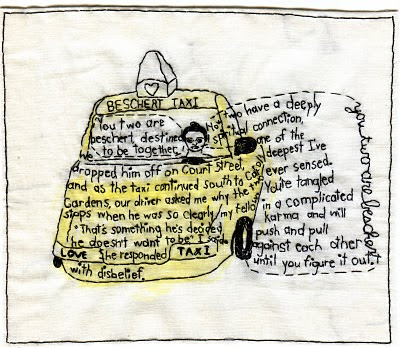 BESCHERT TAXI
"You two are
beschert, destined
to be together."
We
dropped him off on Court Street,
and as the taxi continued south to Carroll
Gardens, our driver asked me why the two
stops when he was so clearly my fellow.
"That's something he's decided
he doesn't want to be" I said.
LOVE She responded TAXI
with disbelief.
two have a deeply
spiritual connection,
one of the
deepest I've
ever sensed.
You're tangled
in a complicated
karma and will
push and pull
against each other
until you figure it out."
you two are beschert